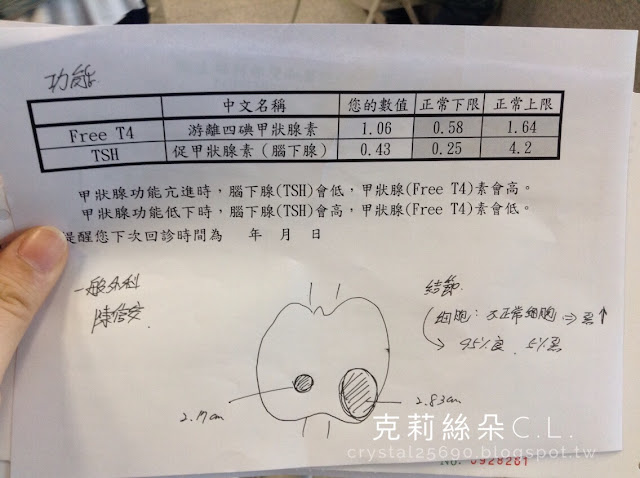 功能
中文名稱 您的數值 正常下限 正常上限
Free T4 游離四碘甲狀腺素 1.06 0.58 1.64
TSH 促甲狀腺素（腦下腺） 0.43 0.25 4.2
甲狀腺功能亢進時，腦下腺(TSH)會低，甲狀腺(Free T4)素會高。
甲狀腺功能低下時，腦下腺(TSH)會高，甲狀腺(Free T4)素會低。
提醒您下次回診時間為 年 月 日
一般外科
結節
細胞：不正常細胞 => 惡↑
→ 95%良 . 5%惡
2.83cm
克莉絲朵C.L.
crystal25690.blogspot.tw
No. 0928261